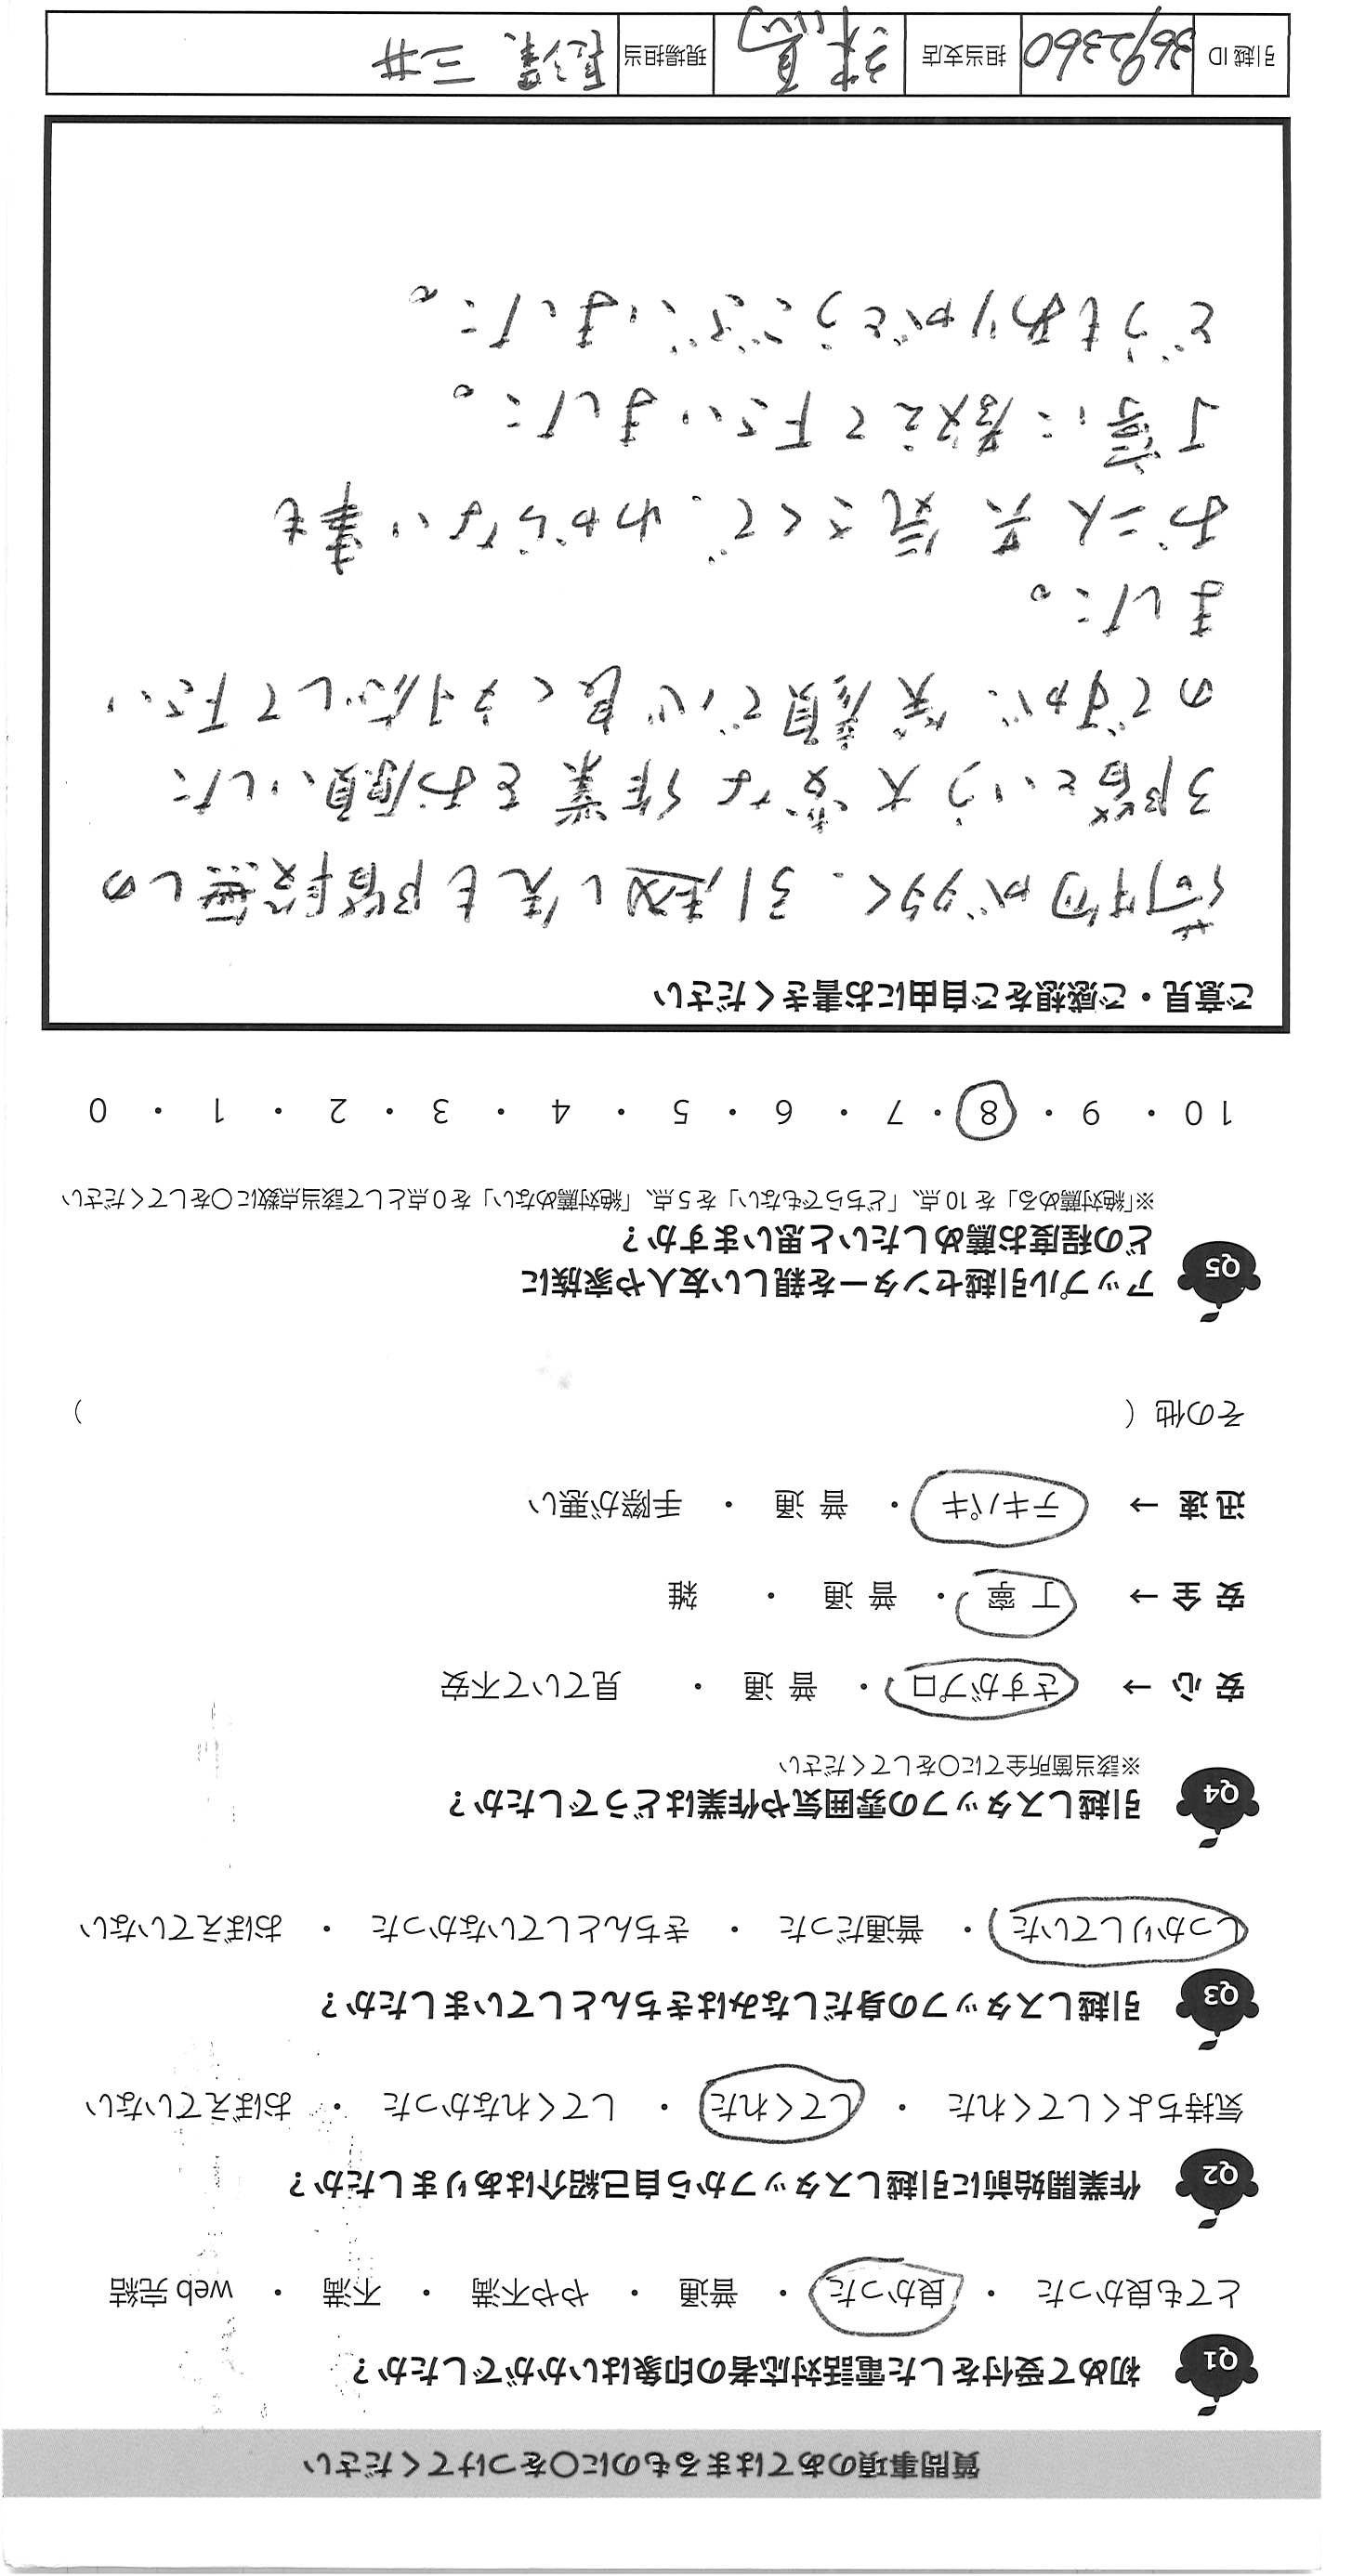 質問事項のあてはまるものに〇をつけてください
Q1 初めて受付をした電話対応者の印象はいかがでしたか？
とても良かった ・ 良かった ・ 普通 ・ やや不満 ・ 不満 ・ web 完結
Q2 作業開始前に引越しスタッフから自己紹介はありましたか？
気持ちよくしてくれた ・ してくれた ・ してくれなかった ・ おぼえていない
Q3 引越しスタッフの身だしなみはきちんとしていましたか？
しっかりしていた ・ 普通だった ・ きちんとしていなかった ・ おぼえていない
Q4 引越しスタッフの雰囲気や作業はどうでしたか？
※該当箇所全てに〇をしてください
安心 → さすがプロ ・ 普通 ・ 見ていて不安
安全 → 丁寧 ・ 普通 ・ 雑
迅速 → テキパキ ・ 普通 ・ 手際が悪い
その他（ ）
Q5 アップル引越センターを親しい友人や家族に
どの程度お薦めしたいと思いますか？
※「絶対薦める」を 10 点、「どちらでもない」を 5 点、「絶対薦めない」を 0 点として該当点数に〇をしてください
10 ・ 9 ・ 8 ・ 7 ・ 6 ・ 5 ・ 4 ・ 3 ・ 2 ・ 1 ・ 0
ご意見・ご感想をご自由にお書きください
荷物が多く、引越し先も階段無しの
3階という大変な作業をお願いした
のですが、笑顔で心良く対応して下さい
ました。
お二人共気さくで、わからない事も
丁寧に教えて下さいました。
どうもありがとうございました。
引越 ID 3692360 担当支店 現場担当 長澤 三井